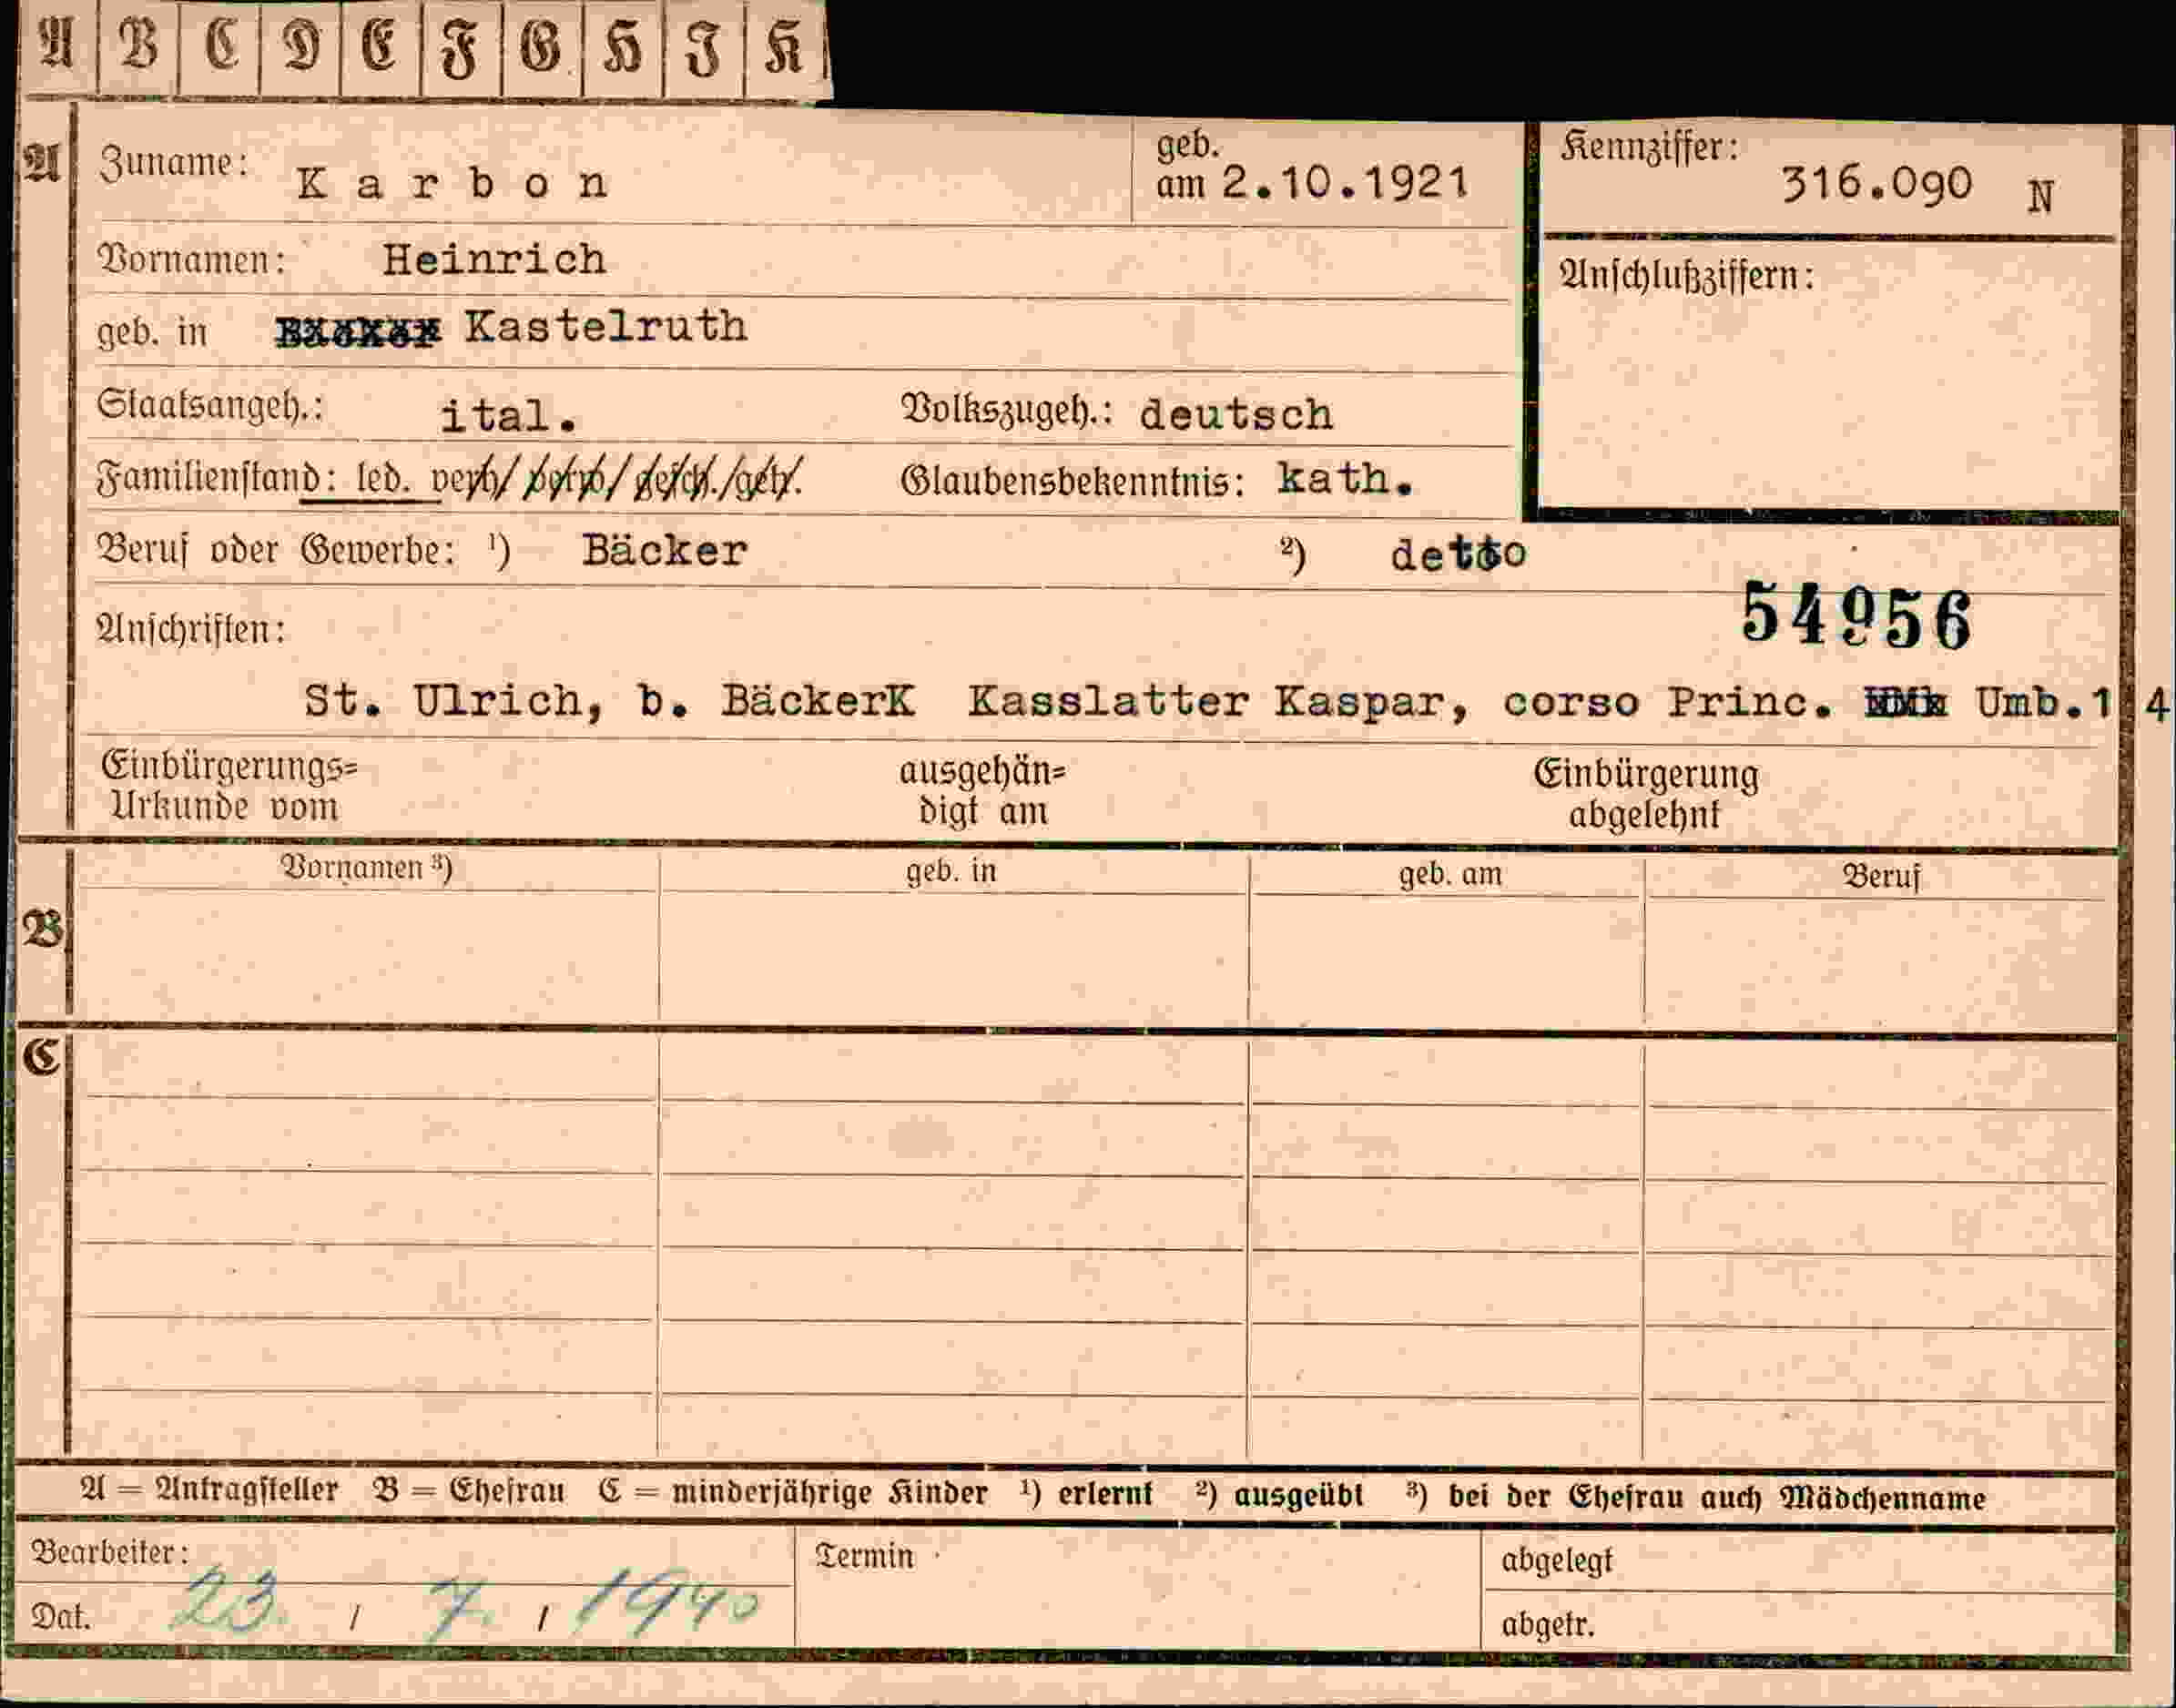 A B C D E F G H J K
A Zuname: Karbon geb. am 2.10.1921 Kennziffer: 316.090 N
Vornamen: Heinrich
Anschlußziffern:
geb. in Kastelruth
Staatsangeh.: ital. Volkszugeh.: deutsch
Familienstand: led. verh/ verw/ gesch./getr. Glaubensbekenntnis: kath.
Beruf oder Gewerbe: ¹) Bäcker ²) detto
54956
Anschriften:
St. Ulrich, b. BäckerK Kasslatter Kaspar, corso Princ. Umb.14
Einbürgerungs= ausgehän= Einbürgerung
Urkunde vom digt am abgelehnt
B Vornamen ³) geb. in geb. am Beruf
C
A = Antragsteller B = Ehefrau C = minderjährige Kinder ¹) erlernt ²) ausgeübt ³) bei der Ehefrau auch Mädchenname
Bearbeiter: Termin abgelegt
Dat. 23. / 7. / 1940 abgetr.